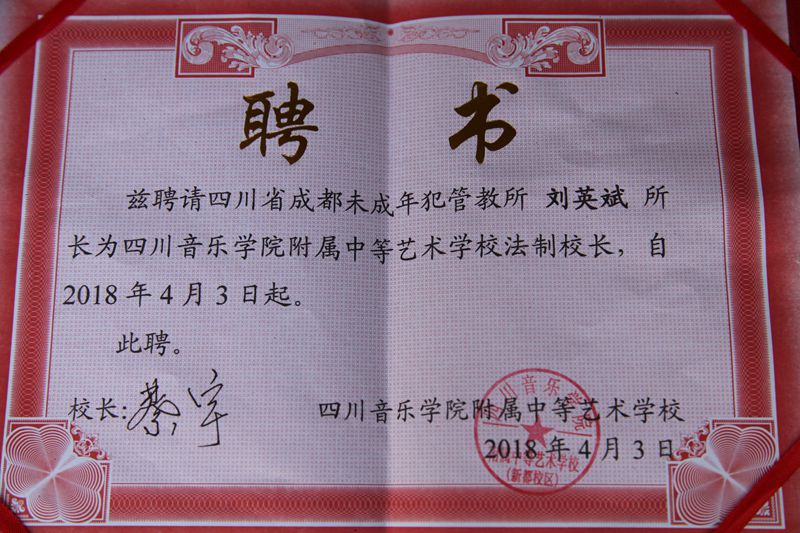 聘 书
兹聘请四川省成都未成年犯管教所 刘英斌 所
长为四川音乐学院附属中等艺术学校法制校长，自
2018 年 4 月 3 日起。
此聘。
校长：蔡宇
四川音乐学院附属中等艺术学校
2018 年 4 月 3 日
四川音乐学院
附属中等艺术学校
（新都校区）